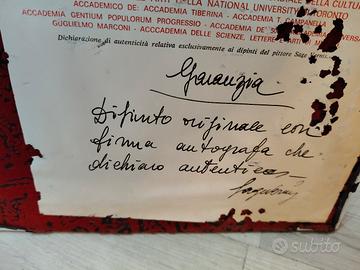 NATIONAL UNIVERSITY TORONTO
ACCADEMICO DE: ACCADEMIA TIBERINA - ACCADEMIA T. CAMPANELLA
ACCADEMIA GENTIUM POPULORUM PROGRESSIO - ACCADEMIA DE'
GUGLIELMO MARCONI - ACCCADEMIA DELLE SCIENZE, LETTERE
Dichiarazione di autenticità relativa esclusivamente ai dipinti del pittore
Garanzia
Dipinto originale con
firma autografa che
dichiaro autentica
subito